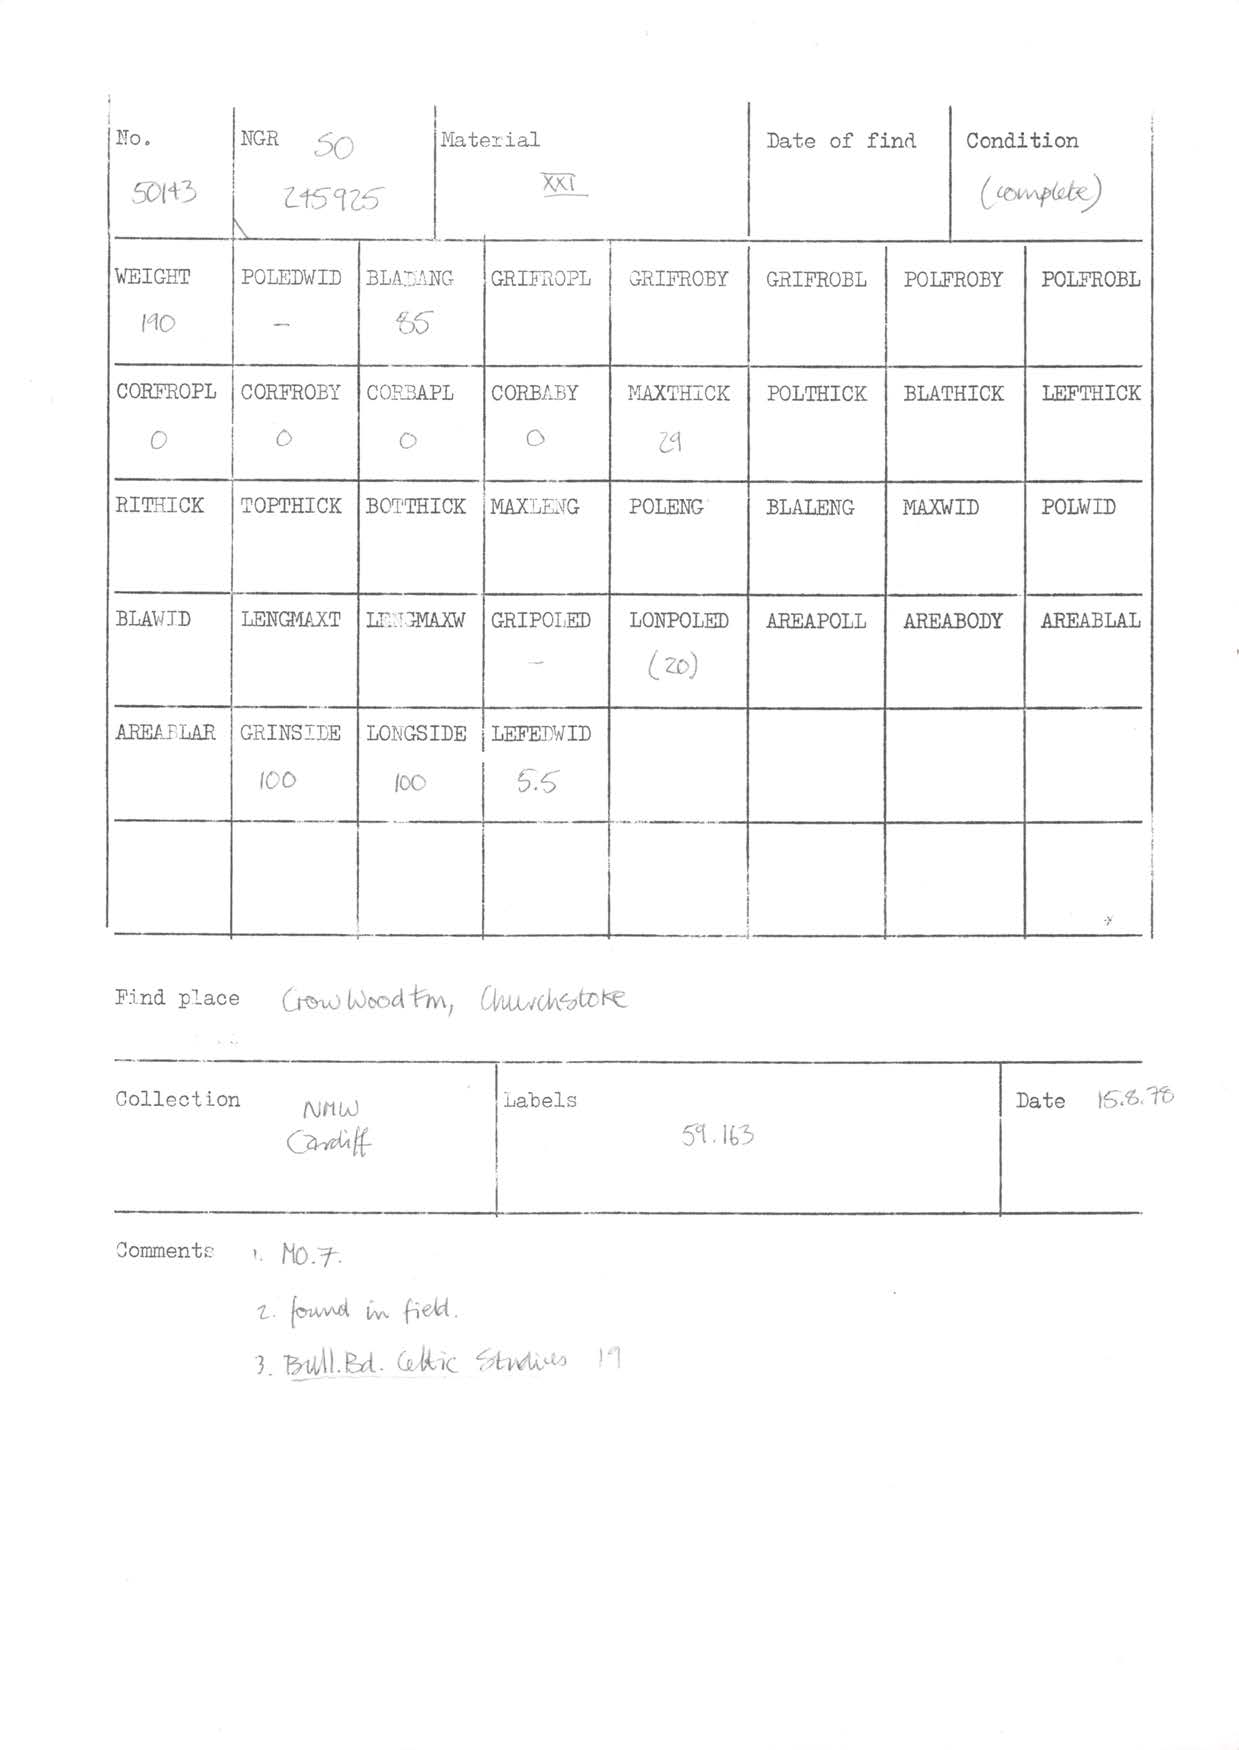 No. NGR SO Material Date of find Condition
50143 245925 XXI (complete)
WEIGHT POLEDWID BLADANG GRIFROPL GRIFROBY GRIFROBL POLFROBY POLFROBL
190 – 85
CORFROPL CORFROBY CORBAPL CORBABY MAXTHICK POLTHICK BLATHICK LEFTHICK
0 0 0 0 29
RITHICK TOPTHICK BOTTHICK MAXLENG POLENG BLALENG MAXWID POLWID
BLAWID LENGMAXT LENGMAXW GRIPOLED LONPOLED AREAPOLL AREABODY AREABLAL
– (20)
AREABLAR GRINSIDE LONGSIDE LEFEDWID
100 100 5.5
Find place Crow Wood Fm, Churchstoke
Collection NMW Labels Date 15.8.78
Cardiff 59.163
Comments 1. MO.7.
2. found in field.
3. Bull.Bd. Celtic Studies 19